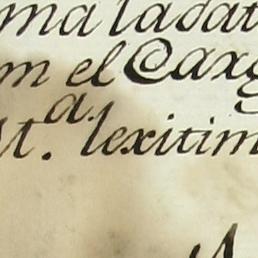 ma la dat
m el Carg
M.ª lexitim